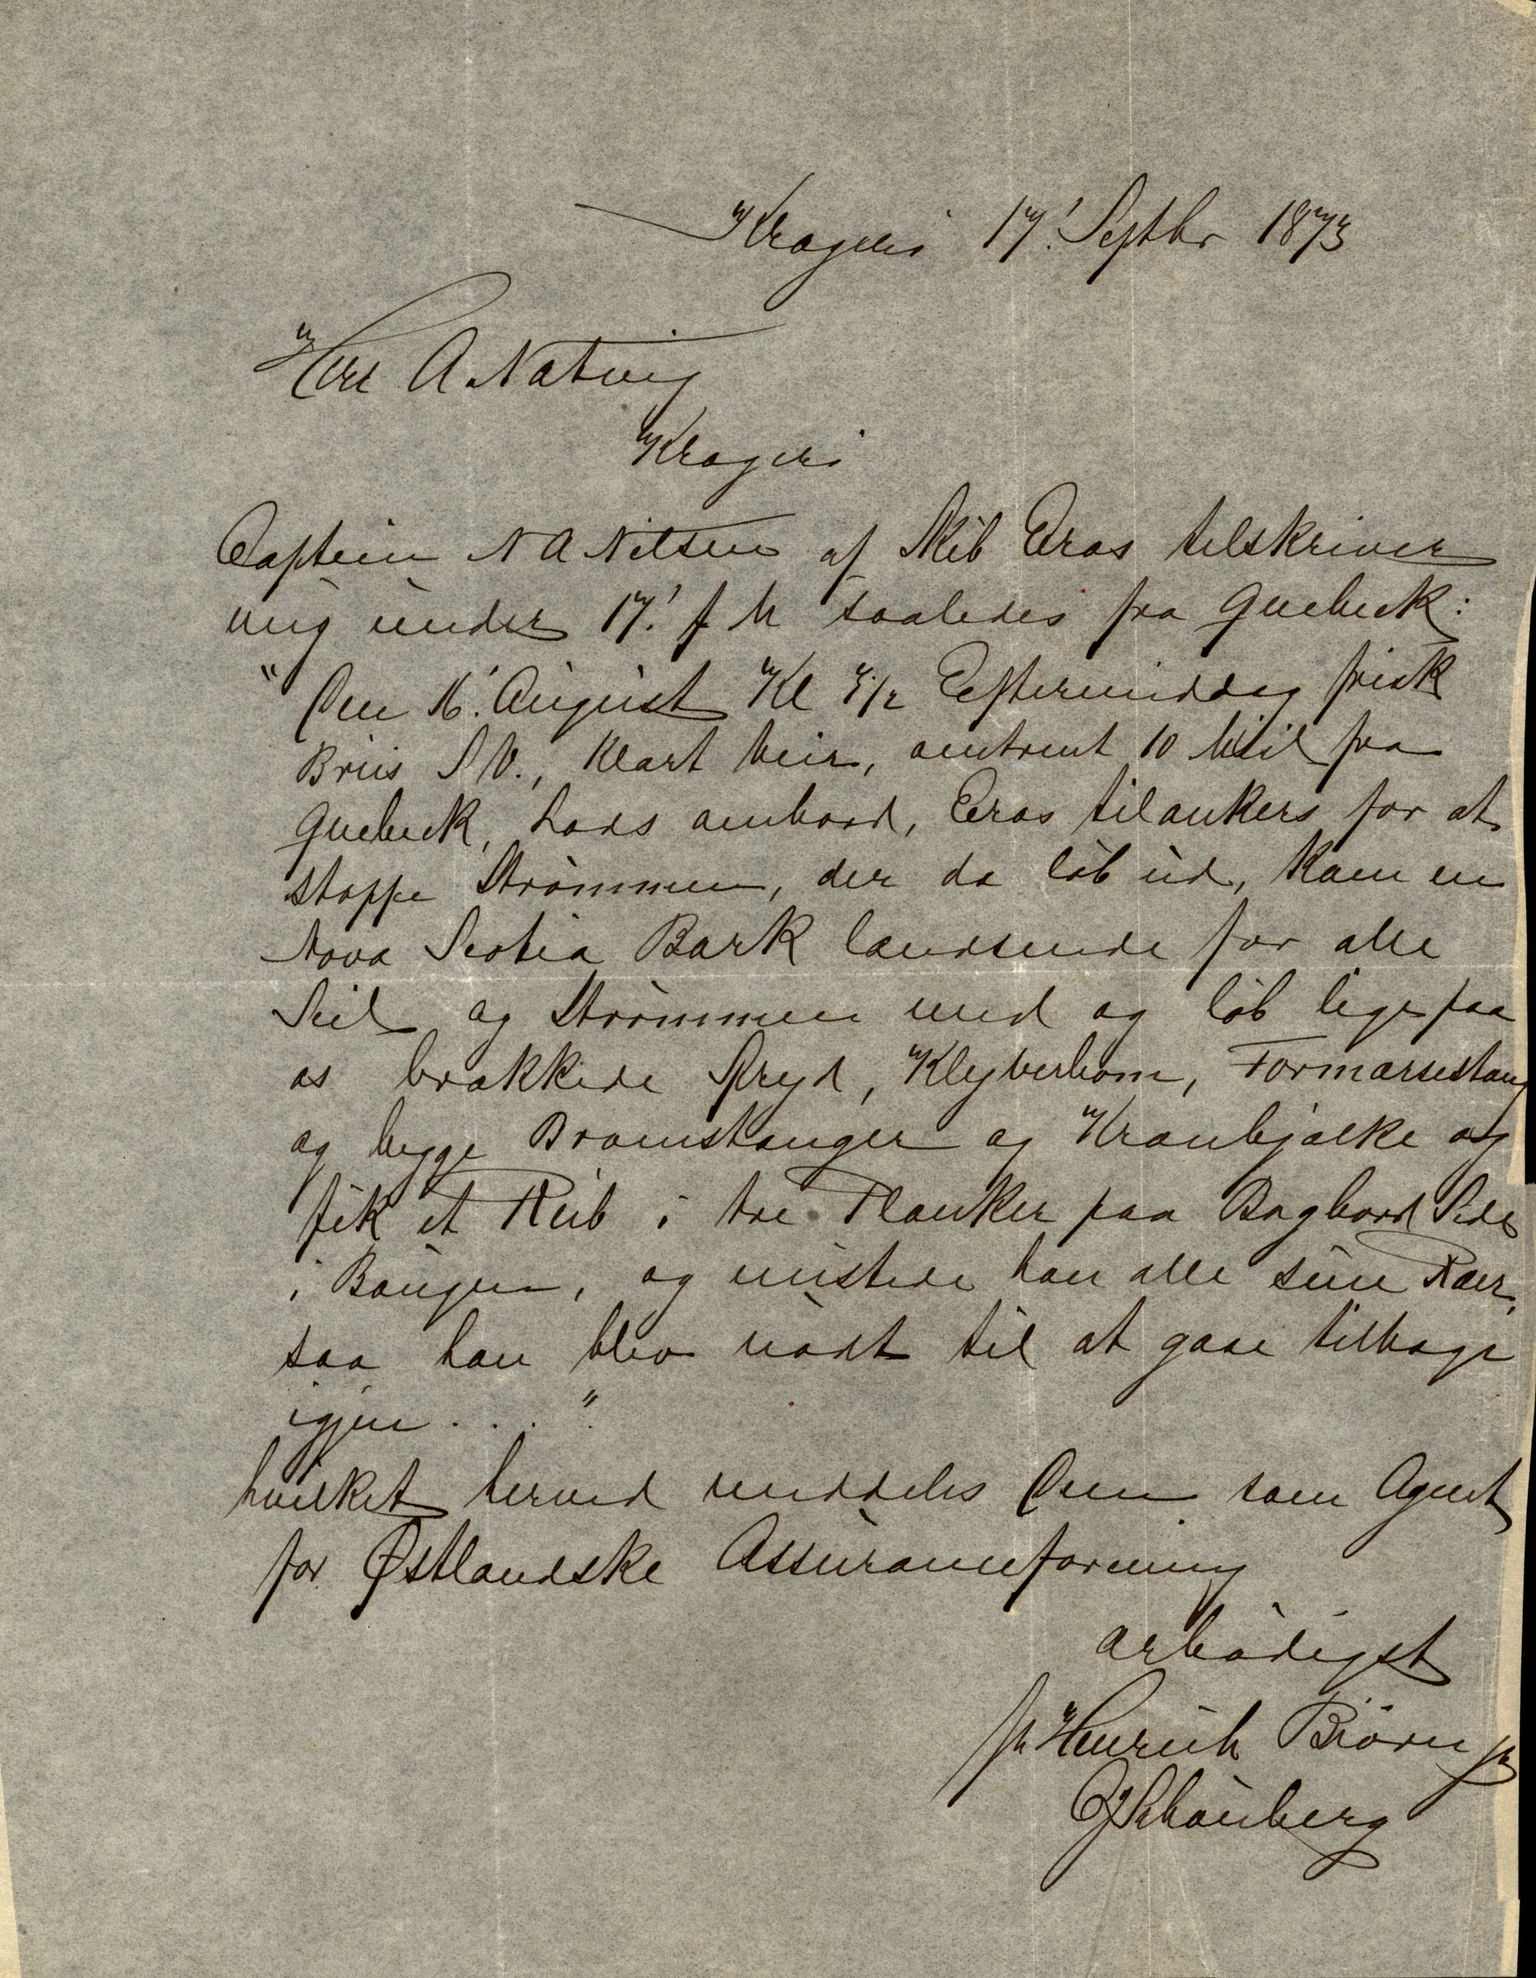 Kragerö 17' Septbr 1873
Herr A. Natvig
Kragerö
Captein N A Nilsen af Skib Eros tilskriver
mig under 17' f M saaledes fra Quebeck:
"Den 16' August Kl 5 1/2 Eftermiddag frisk
Briis S.V., klart Veir, omtrent 10 Miil fra
Quebeck, Lods ombord, Eros tilankers for at
stoppe Strömmen, der da löb ud, kom en
Nova Scotia Bark lændsende for alle
Seil og Strömmen med og löb lige paa
os brækkede Spryd, Klyverbom, Formærsestang
og begge Bramstænger og Kranbjælke og
fik et Reib i tre Planker paa Bagbord Side
i Bougen, og mistede han alle sine Ræer,
saa han blev nödt til at gaae tilbage
igjen . . . ."
hvilket herved meddeles Dem som Agent
for Østlandske Assuranceforening
ærbödigst
pr Henrich Biörn jr
Schönberg